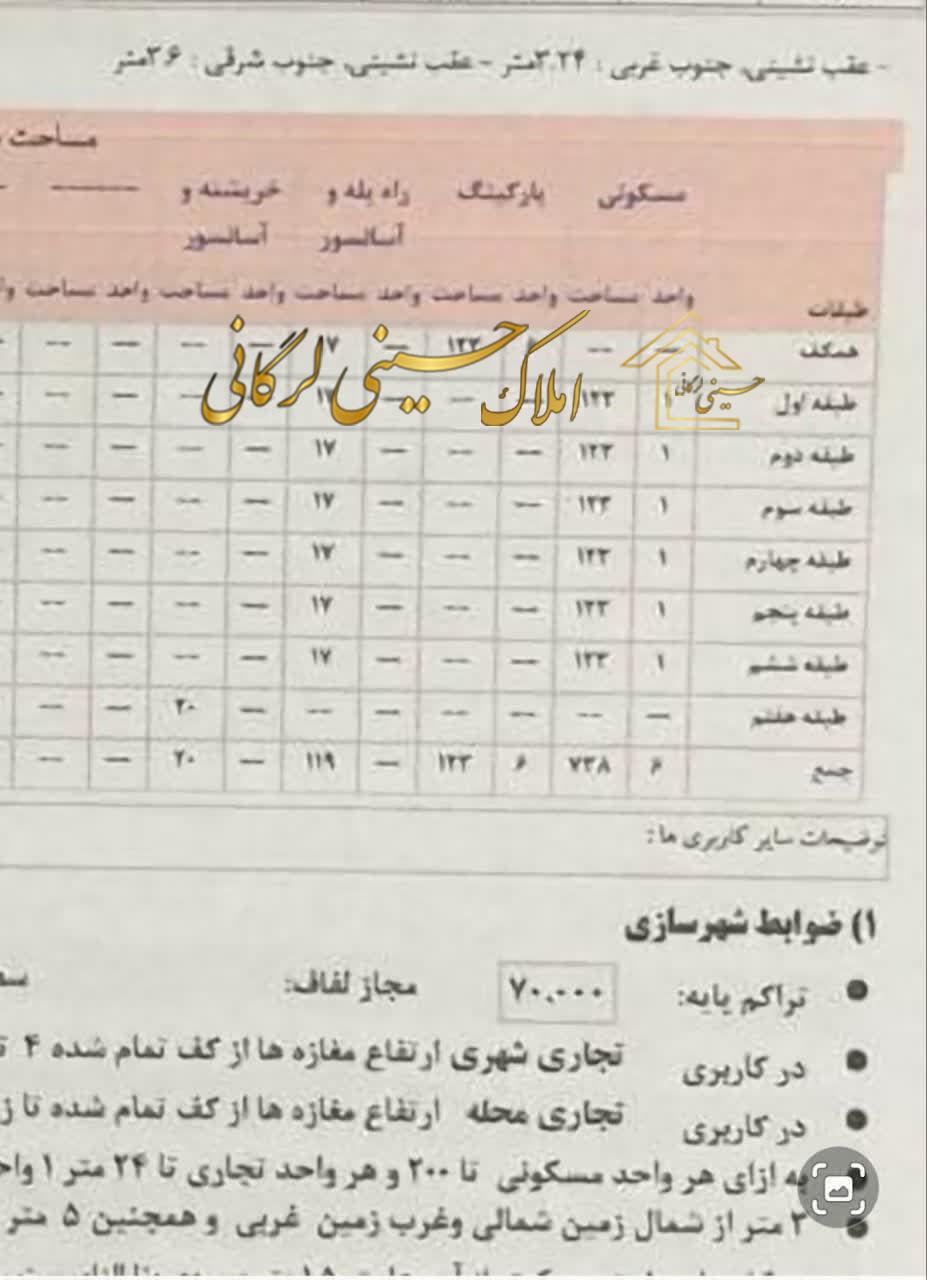 - عقب نشینی، جنوب غربی : ۳.۲۴متر - عقب نشینی، جنوب شرقی : ۳۶متر
مساحت
مسکونی پارکینگ راه پله و خرپشته و
آسانسور آسانسور
طبقات واحد مساحت واحد مساحت واحد مساحت واحد مساحت واحد مساحت
همکف — -- ۶ ۱۲۳ — ۱۷ — -- — --
املاک حسینی لرگانی
حسینی لرگانی
طبقه اول ۱ ۱۲۳ — -- — ۱۷ — -- — --
طبقه دوم ۱ ۱۲۳ — -- — ۱۷ — -- — --
طبقه سوم ۱ ۱۲۳ — -- — ۱۷ — -- — --
طبقه چهارم ۱ ۱۲۳ — -- — ۱۷ — -- — --
طبقه پنجم ۱ ۱۲۳ — -- — ۱۷ — -- — --
طبقه ششم ۱ ۱۲۳ — -- — ۱۷ — -- — --
طبقه هفتم — -- — -- — -- — ۲۰ — --
جمع ۶ ۷۳۸ ۶ ۱۲۳ — ۱۱۹ — ۲۰ — --
توضیحات سایر کاربری ها:
۱) ضوابط شهرسازی
● تراکم پایه: ۷۰.۰۰۰ مجاز لفاف:
● در کاربری تجاری شهری ارتفاع مغازه ها از کف تمام شده ۴
● در کاربری تجاری محله ارتفاع مغازه ها از کف تمام شده تا
به ازای هر واحد مسکونی تا ۲۰۰ و هر واحد تجاری تا ۲۴ متر ۱
● ۳ متر از شمال زمین شمالی وغرب زمین غربی و همچنین ۵ متر